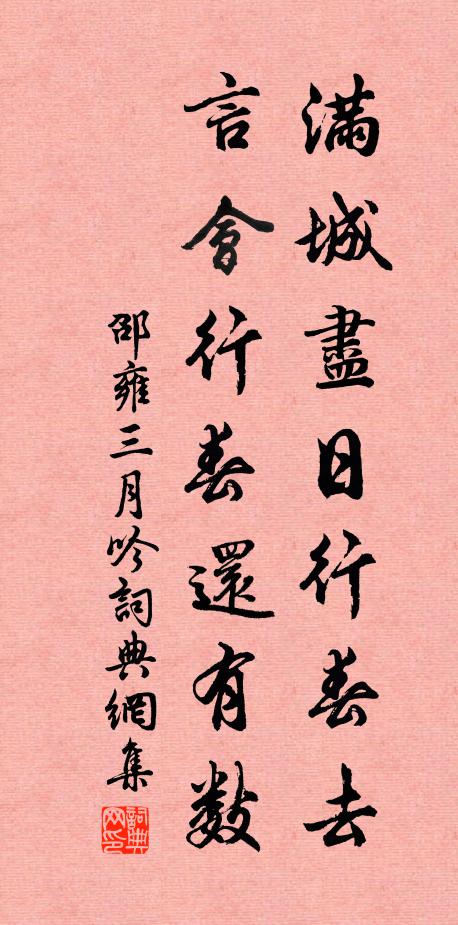 滿城盡日行春去
言會行春還有數
邵雍三月吟詞典網集
詞典网印